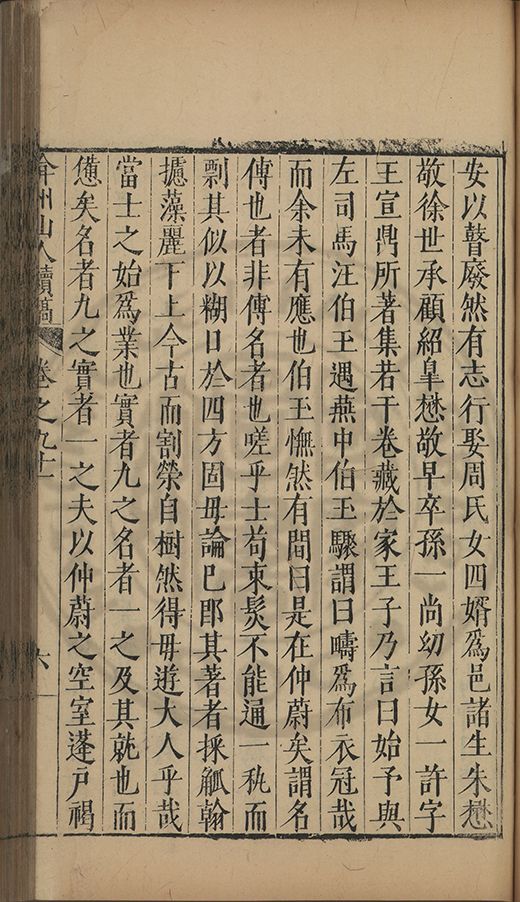 安以瞽廢然有志行娶周氏女四婿爲邑諸生朱懋
敬徐世承顧紹臯懋敬早卒孫一尚幼孫女一許字
王宣鼎所著集若干卷藏於家王子乃言曰始予與
左司馬汪伯玉遇燕中伯玉驟謂曰疇爲布衣冠哉
而余未有應也伯玉憮然有間曰是在仲蔚矣謂名
傳也者非傳名者也嗟乎士苟束髮不能通一秇而
剽其似以糊口於四方固毋論已卽其著者採觚翰
攄藻麗下上今古而割榮自樹然得毋遊大人乎哉
當士之始爲業也實者九之名者一之及其就也而
憊矣名者九之實者一之夫以仲蔚之空室蓬戶褐
弇州山人續稿 卷之九十 六